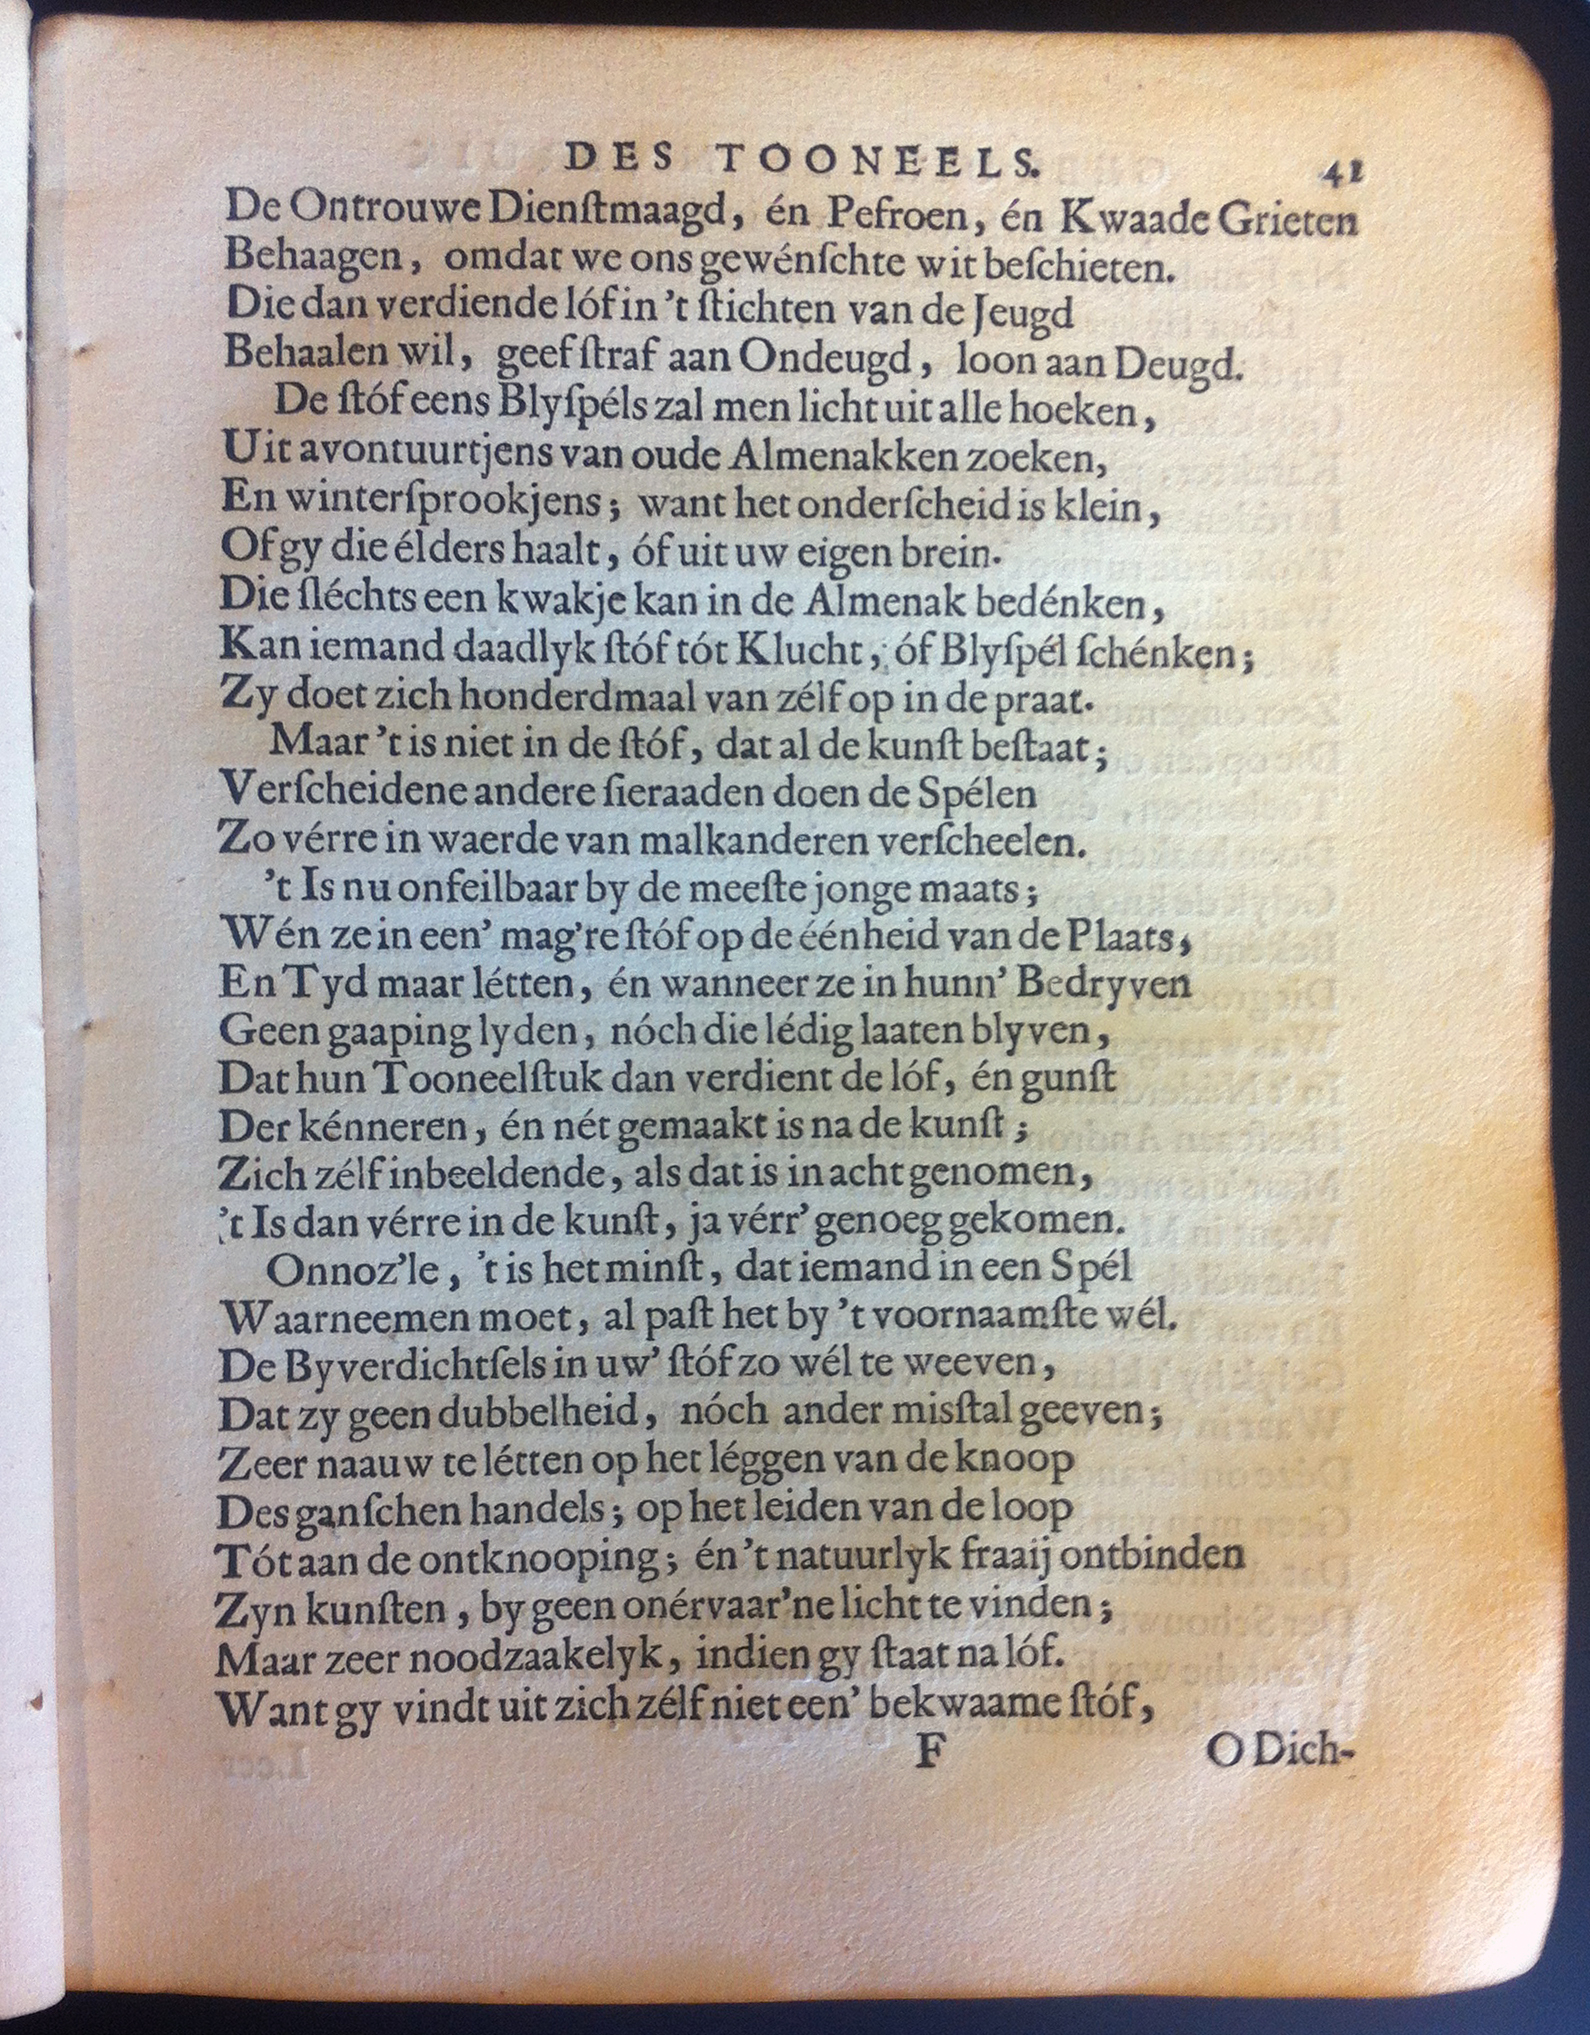 DES TOONEELS. 41
De Ontrouwe Dienſtmaagd, én Pefroen, én Kwaade Grieten
Behaagen, omdat we ons gewénſchte wit beſchieten.
Die dan verdiende lóf in 't ſtichten van de Jeugd
Behaalen wil, geef ſtraf aan Ondeugd, loon aan Deugd.
De ſtóf eens Blyſpéls zal men licht uit alle hoeken,
Uit avontuurtjens van oude Almenakken zoeken,
En winterſprookjens; want het onderſcheid is klein,
Of gy die élders haalt, óf uit uw eigen brein.
Die ſléchts een kwakje kan in de Almenak bedénken,
Kan iemand daadlyk ſtóf tót Klucht, óf Blyſpél ſchénken;
Zy doet zich honderdmaal van zélf op in de praat.
Maar 't is niet in de ſtóf, dat al de kunſt beſtaat;
Verſcheidene andere ſieraaden doen de Spélen
Zo vérre in waerde van malkanderen verſcheelen.
't Is nu onfeilbaar by de meeſte jonge maats;
Wén ze in een' mag're ſtóf op de éénheid van de Plaats,
En Tyd maar létten, én wanneer ze in hunn' Bedryven
Geen gaaping lyden, nóch die lédig laaten blyven,
Dat hun Tooneelſtuk dan verdient de lóf, én gunſt
Der kénneren, én nét gemaakt is na de kunſt;
Zich zélf inbeeldende, als dat is in acht genomen,
't Is dan vérre in de kunſt, ja vérr' genoeg gekomen.
Onnoz'le, 't is het minſt, dat iemand in een Spél
Waarneemen moet, al paſt het by 't voornaamſte wél.
De Byverdichtſels in uw' ſtóf zo wél te weeven,
Dat zy geen dubbelheid, nóch ander misſtal geeven;
Zeer naauw te létten op het léggen van de knoop
Des ganſchen handels; op het leiden van de loop
Tót aan de ontknooping; én 't natuurlyk fraaij ontbinden
Zyn kunſten, by geen onérvaar'ne licht te vinden;
Maar zeer noodzaakelyk, indien gy ſtaat na lóf.
Want gy vindt uit zich zélf niet een' bekwaame ſtóf,
F O Dich-